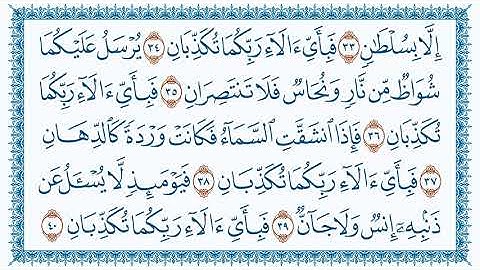 إِلَّا بِسُلْطَٰنٍ ٣٣ فَبِأَيِّ ءَالَآءِ رَبِّكُمَا تُكَذِّبَانِ ٣٤ يُرْسَلُ عَلَيْكُمَا
شُوَاظٌ مِّن نَّارٍ وَنُحَاسٌ فَلَا تَنتَصِرَانِ ٣٥ فَبِأَيِّ ءَالَآءِ رَبِّكُمَا
تُكَذِّبَانِ ٣٦ فَإِذَا ٱنشَقَّتِ ٱلسَّمَآءُ فَكَانَتْ وَرْدَةً كَٱلدِّهَانِ
٣٧ فَبِأَيِّ ءَالَآءِ رَبِّكُمَا تُكَذِّبَانِ ٣٨ فَيَوْمَئِذٍ لَّا يُسْـَٔلُ عَن
ذَنۢبِهِۦٓ إِنسٌ وَلَا جَآنٌّ ٣٩ فَبِأَيِّ ءَالَآءِ رَبِّكُمَا تُكَذِّبَانِ ٤٠